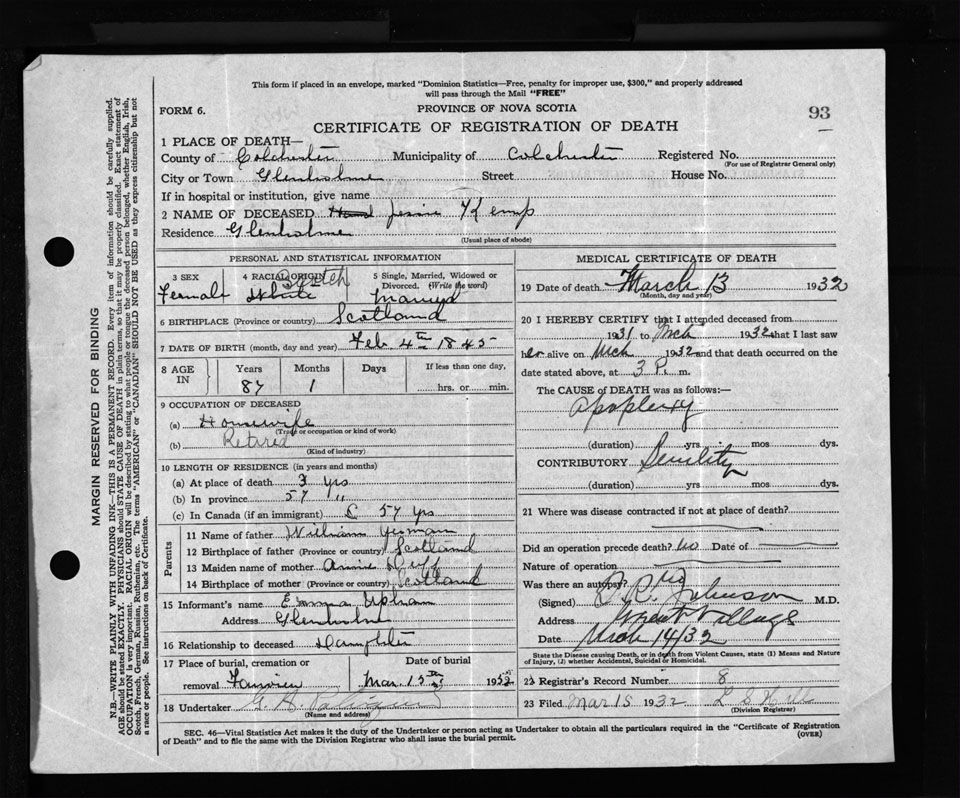 This form if placed in an envelope, marked "Dominion Statistics—Free, penalty for improper use, $300," and properly addressed
will pass through the Mail "FREE"
FORM 6.
PROVINCE OF NOVA SCOTIA
93
CERTIFICATE OF REGISTRATION OF DEATH
1 PLACE OF DEATH—
County of Colchester Municipality of Colchester Registered No.
(For use of Registrar General only)
City or Town Glenholme Street House No.
If in hospital or institution, give name
2 NAME OF DECEASED Jessie Kemp
Residence Glenholme
(Usual place of abode)
PERSONAL AND STATISTICAL INFORMATION
3 SEX 4 RACIAL ORIGIN 5 Single, Married, Widowed or Divorced. (Write the word)
Scotch
Female White Married
6 BIRTHPLACE (Province or country) Scotland
7 DATE OF BIRTH (month, day and year) Feb 4th 1845
8 AGE IN Years Months Days If less than one day,
87 1 hrs. or min.
9 OCCUPATION OF DECEASED
(a) Housewife
(Trade or occupation or kind of work)
(b) Retired
(Kind of industry)
10 LENGTH OF RESIDENCE (in years and months)
(a) At place of death 3 yrs
(b) In province 57 "
(c) In Canada (if an immigrant) 57 yrs
Parents
11 Name of father William
12 Birthplace of father (Province or country) Scotland
13 Maiden name of mother Annie Duff
14 Birthplace of mother (Province or country) Scotland
15 Informant's name Emma Upham
Address Glenholme
16 Relationship to deceased Daughter
17 Place of burial, cremation or removal Date of burial
Mar. 15th 1932
18 Undertaker G. A.
(Name and address)
MEDICAL CERTIFICATE OF DEATH
19 Date of death March 13 1932
(Month, day and year)
20 I HEREBY CERTIFY that I attended deceased from
1931 to Mch 1932 that I last saw
her alive on Mch 1932 and that death occurred on the
date stated above, at 3 P. m.
The CAUSE of DEATH was as follows:—
Apoplexy
(duration) yrs mos dys.
CONTRIBUTORY Senility
(duration) yrs mos dys.
21 Where was disease contracted if not at place of death?
Did an operation precede death? no Date of
Nature of operation
Was there an autopsy? no
(Signed) Johnson M.D.
Address Great Village
Date March 14/32
State the Disease causing Death, or in death from Violent Causes, state (1) Means and Nature
of Injury, (J) whether Accidental, Suicidal or Homicidal.
22 Registrar's Record Number 8
23 Filed Mar 15 1932 L S Hill
(Division Registrar)
SEC. 46—Vital Statistics Act makes it the duty of the Undertaker or person acting as Undertaker to obtain all the particulars required in the "Certificate of Registration
of Death" and to file the same with the Division Registrar who shall issue the burial permit.
(OVER)
MARGIN RESERVED FOR BINDING
N.B.—WRITE PLAINLY WITH UNFADING INK—THIS IS A PERMANENT RECORD. Every item of information should be carefully supplied.
AGE should be stated EXACTLY. PHYSICIANS should STATE CAUSE OF DEATH in plain terms, so that it may be properly classified. Exact statement of
OCCUPATION is very important. RACIAL ORIGIN will be described by stating to what people or tongue the deceased person belonged, whether English, Irish,
Scotch, French, German, Russian, Ruthenian, etc. The terms "AMERICAN" or "CANADIAN" SHOULD NOT BE USED as they express citizenship but not
a race or people. See instructions on back of Certificate.